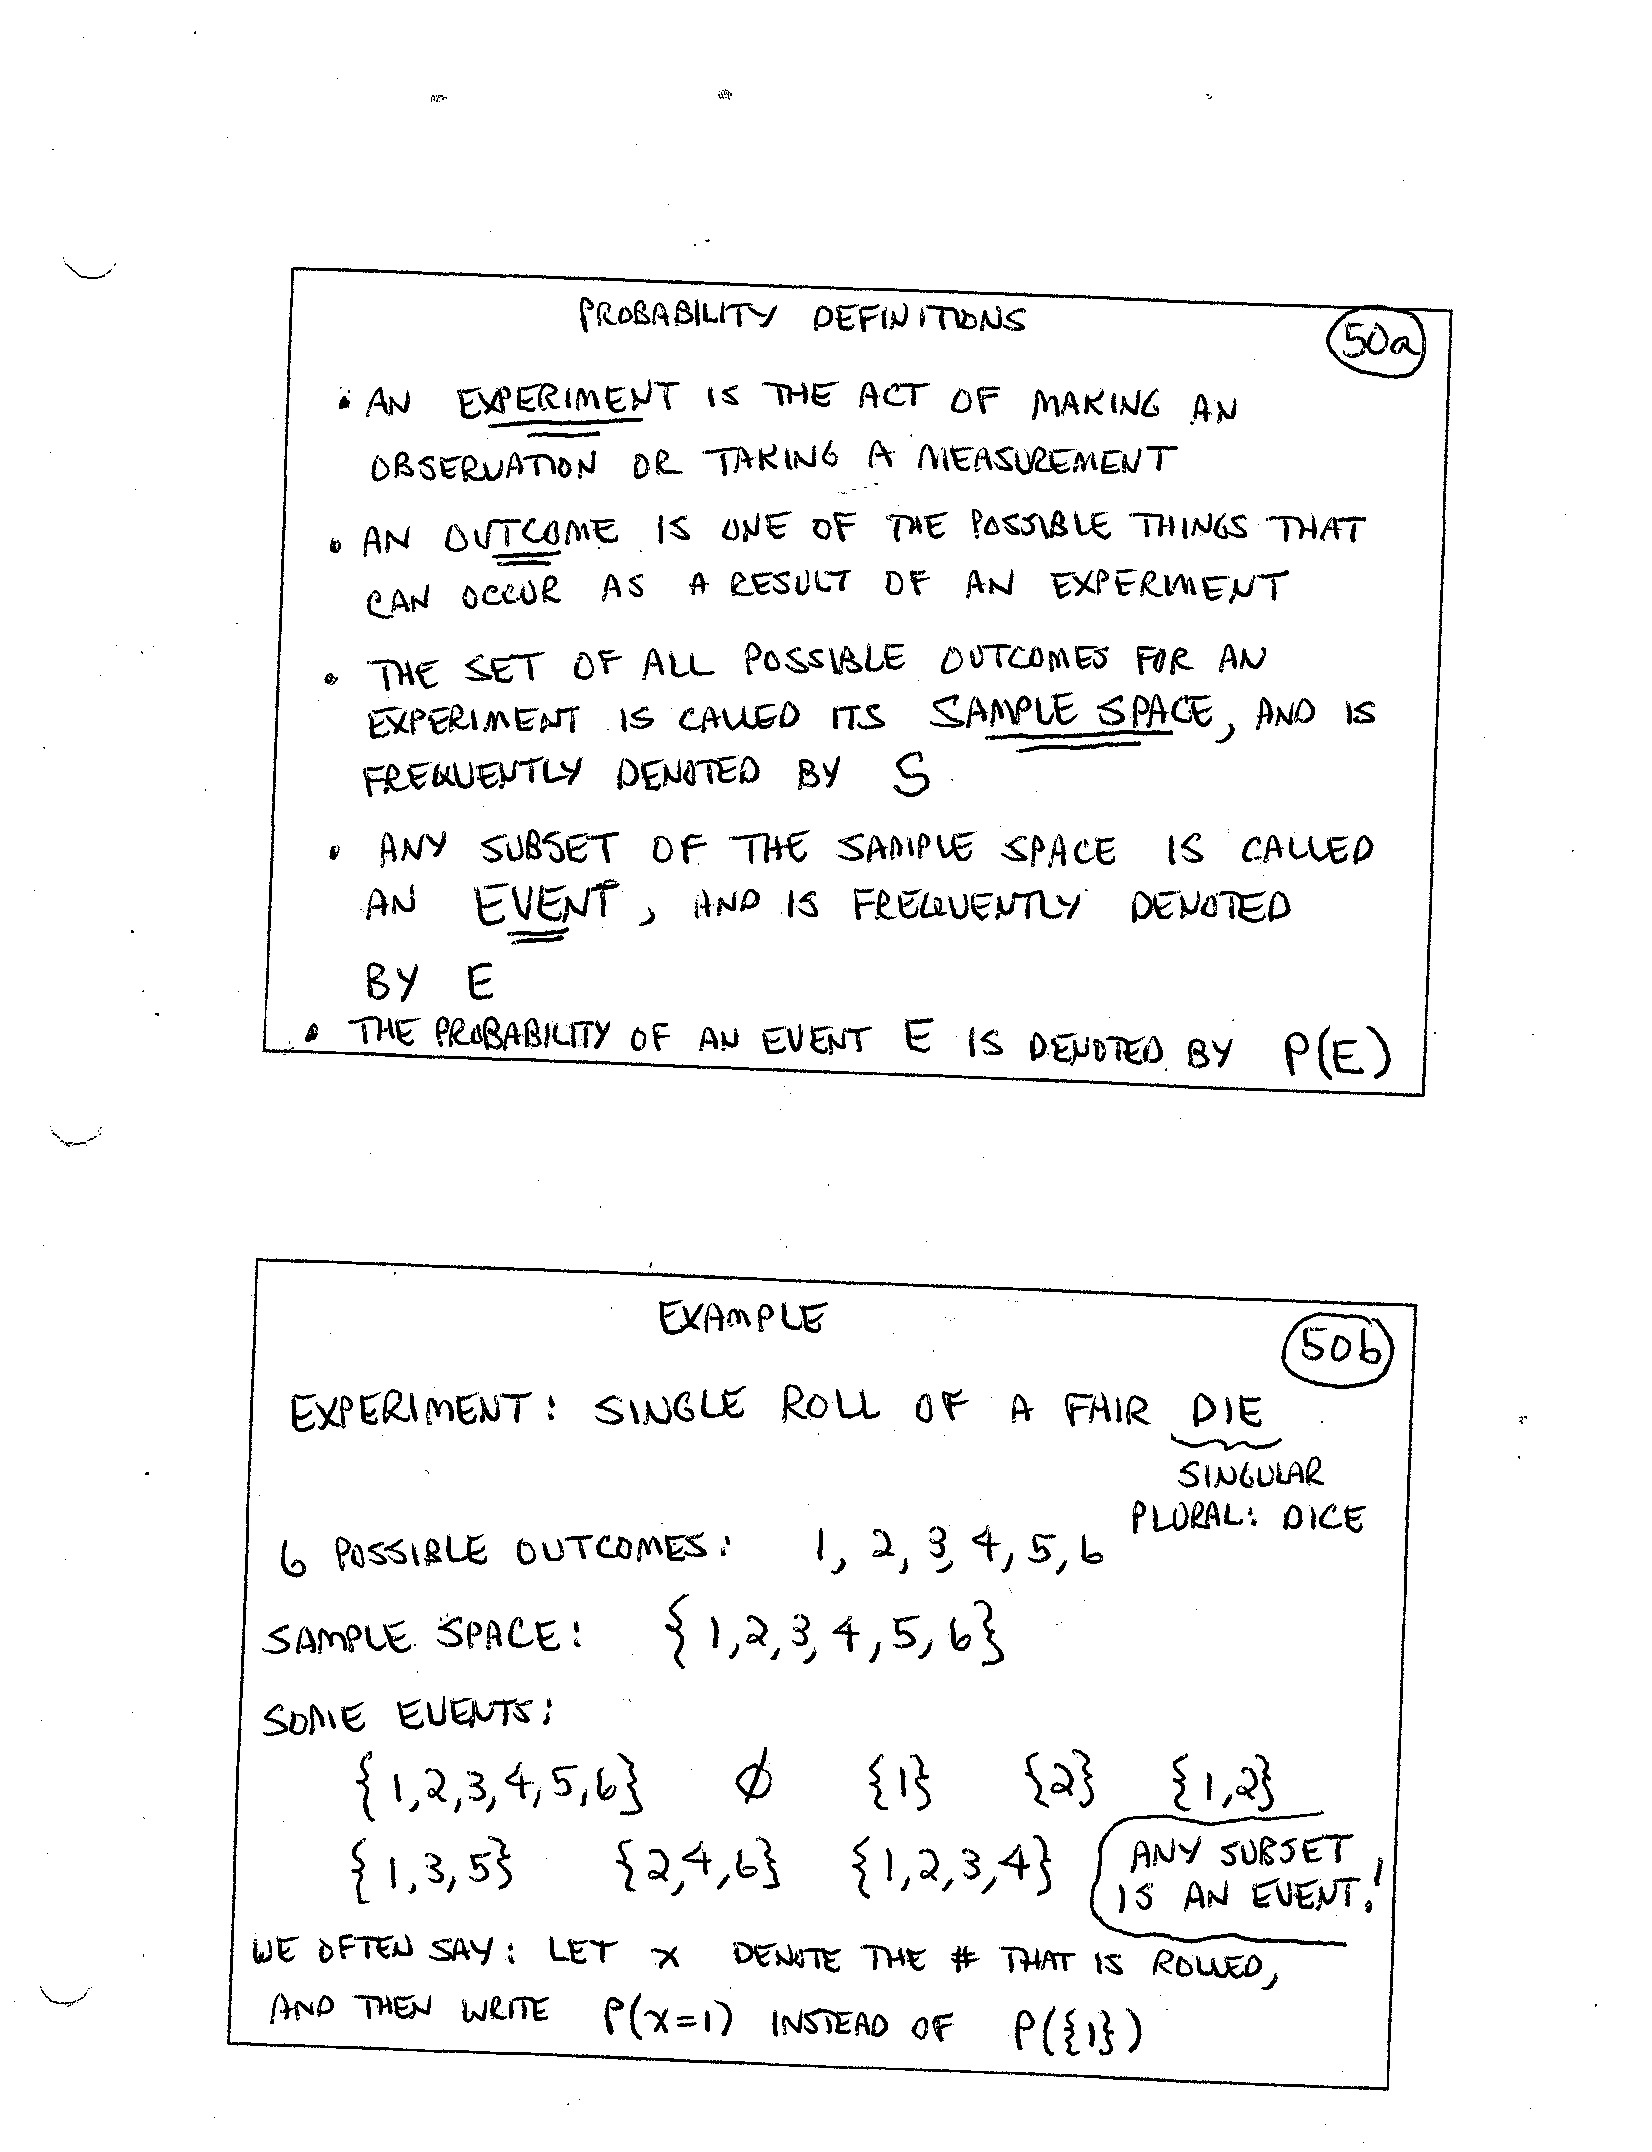 PROBABILITY DEFINITIONS
50a
• AN EXPERIMENT IS THE ACT OF MAKING AN
OBSERVATION OR TAKING A MEASUREMENT
• AN OUTCOME IS ONE OF THE POSSIBLE THINGS THAT
CAN OCCUR AS A RESULT OF AN EXPERIMENT
• THE SET OF ALL POSSIBLE OUTCOMES FOR AN
EXPERIMENT IS CALLED ITS SAMPLE SPACE, AND IS
FREQUENTLY DENOTED BY S
• ANY SUBSET OF THE SAMPLE SPACE IS CALLED
AN EVENT, AND IS FREQUENTLY DENOTED
BY E
• THE PROBABILITY OF AN EVENT E IS DENOTED BY P(E)
EXAMPLE
50b
EXPERIMENT: SINGLE ROLL OF A FAIR DIE
SINGULAR
PLURAL: DICE
6 POSSIBLE OUTCOMES: 1, 2, 3, 4, 5, 6
SAMPLE SPACE: {1,2,3,4,5,6}
SOME EVENTS:
{1,2,3,4,5,6} ∅ {1} {2} {1,2}
{1,3,5} {2,4,6} {1,2,3,4}
ANY SUBSET
IS AN EVENT!
WE OFTEN SAY: LET X DENOTE THE # THAT IS ROLLED,
AND THEN WRITE P(X=1) INSTEAD OF P({1})